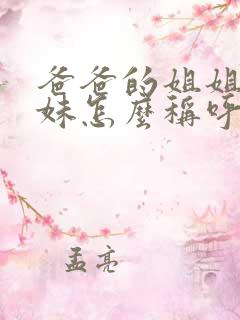 爸爸的姐姐
妹怎麼稱呼
孟亮